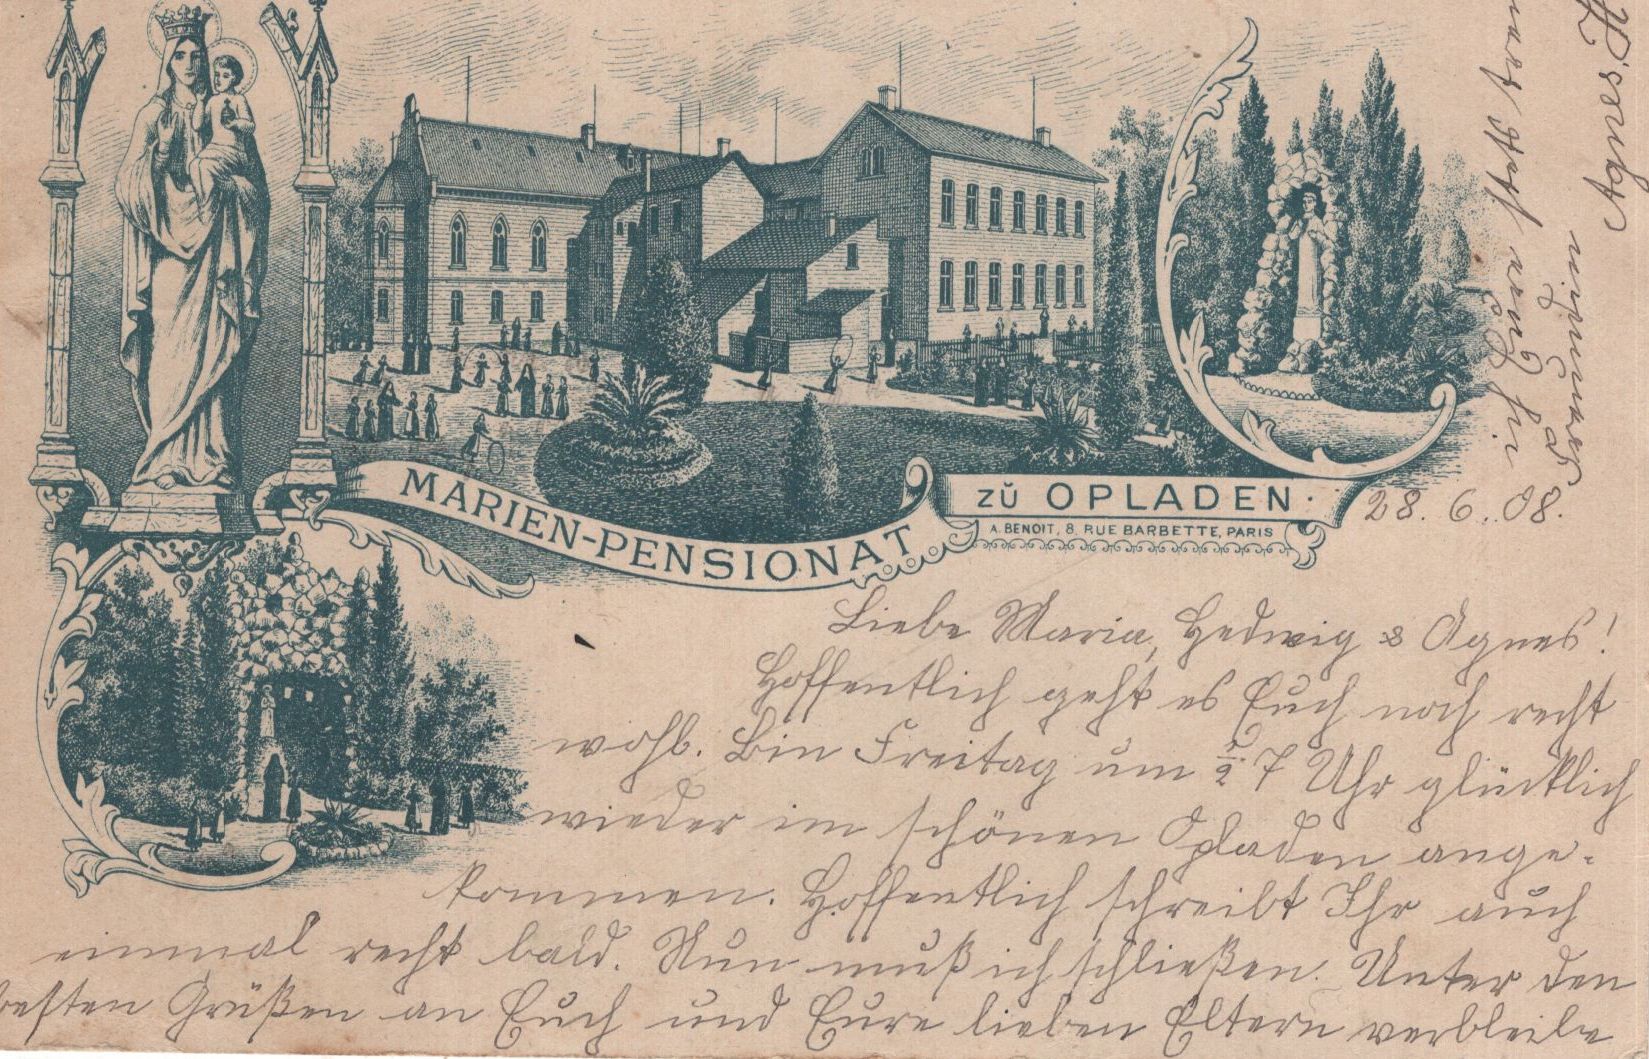 MARIEN-PENSIONAT
ZŬ OPLADEN.
A. BENOIT, 8, RUE BARBETTE, PARIS
28. 6. 08.
Liebe Maria, Hedwig & Agnes!
Hoffentlich geht es Euch noch recht
wohl. Bin Freitag um ½ 7 Uhr glücklich
wieder im schönen Opladen ange-
kommen. Hoffentlich schreibt Ihr auch
einmal recht bald. Nun muß ich schließen. Unter den
besten Grüßen an Euch und Eure lieben Eltern verbleibe
ich Eure
Agnes